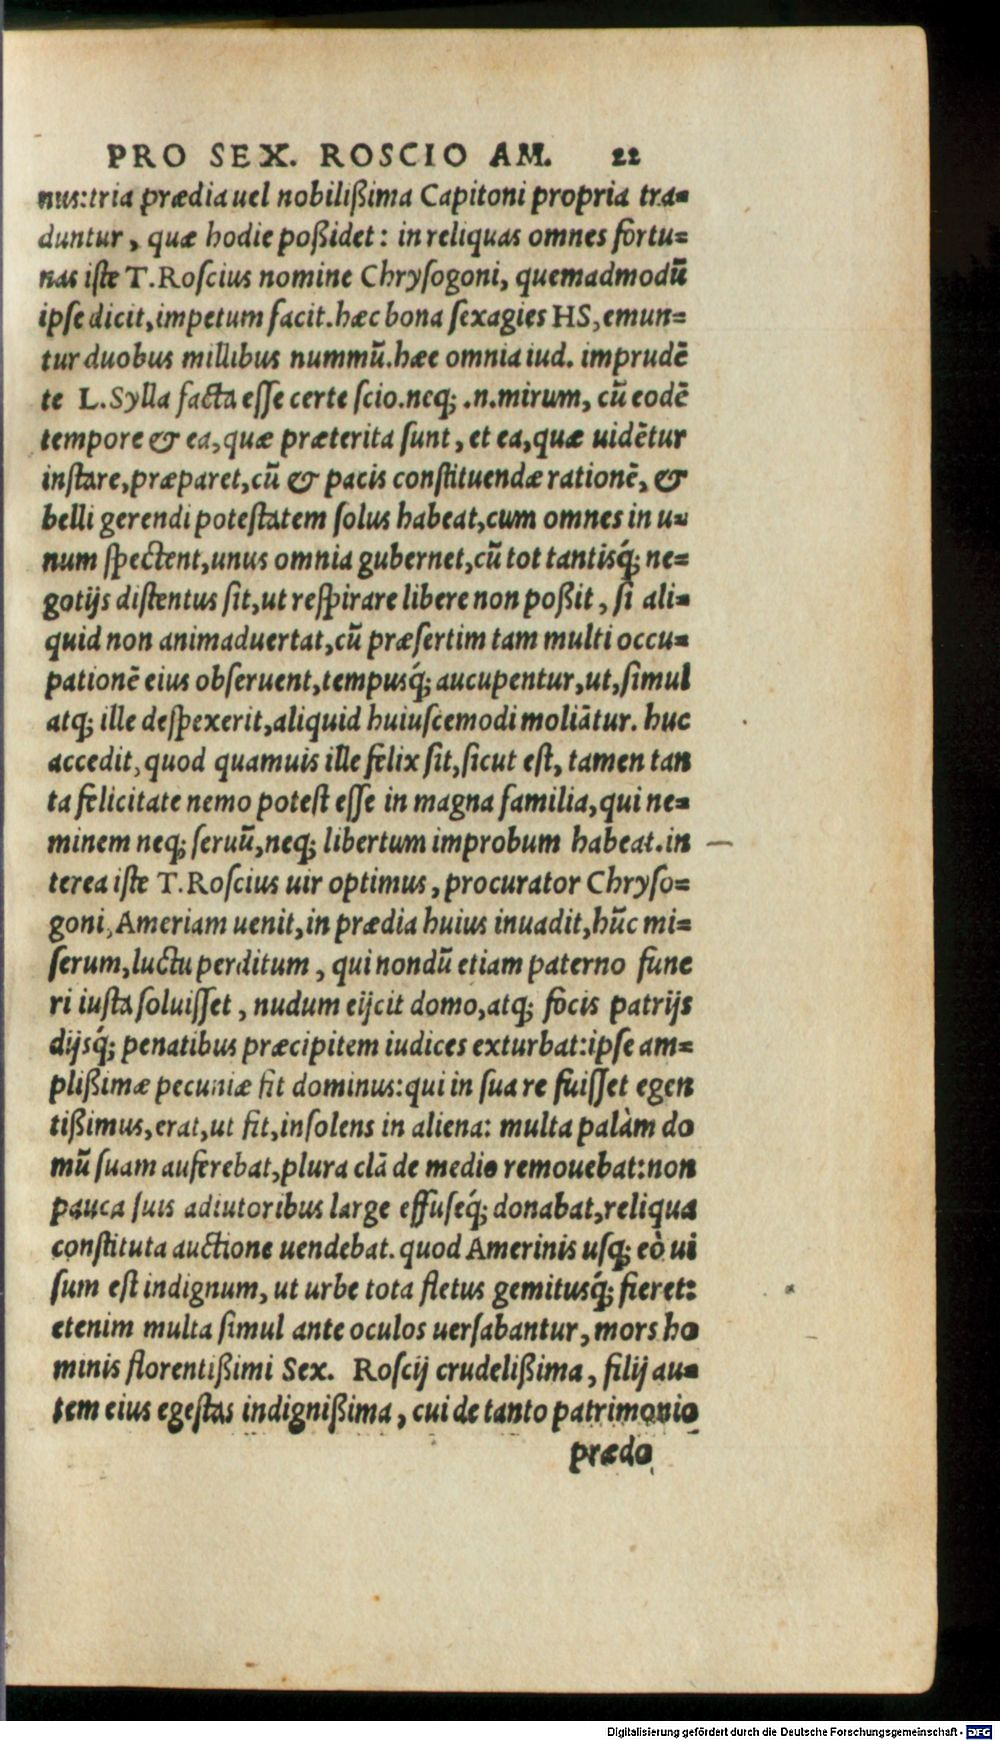 PRO SEX. ROSCIO AM. 22
nus:tria prædia uel nobilißima Capitoni propria tra=
duntur, quæ hodie poßidet: in reliquas omnes fortu=
nas iste T.Roscius nomine Chrysogoni, quemadmodū
ipse dicit,impetum facit.hæc bona sexagies HS,emun=
tur duobus millibus nummū.hæc omnia iud. imprudē
te L.Sylla facta esse certe scio.neq; .n.mirum, cū eodē
tempore & ea,quæ præterita sunt, et ea,quæ uidētur
instare,præparet,cū & pacis constituendæ rationē, &
belli gerendi potestatem solus habeat,cum omnes in u=
num spectent,unus omnia gubernet,cū tot tantisq́; ne=
gotijs distentus sit,ut respirare libere non poßit, si ali=
quid non animaduertat,cū præsertim tam multi occu=
pationē eius obseruent,tempusq́; aucupentur,ut,simul
atq; ille despexerit,aliquid huiuscemodi moliātur. huc
accedit,quod quamuis ille felix sit,sicut est, tamen tan
ta felicitate nemo potest esse in magna familia,qui ne=
minem neq; seruū,neq; libertum improbum habeat.in
terea iste T.Roscius uir optimus, procurator Chryso=
goni,Ameriam uenit,in prædia huius inuadit,hūc mi=
serum,luctu perditum, qui nondū etiam paterno fune
ri iusta soluisset, nudum eijcit domo,atq; focis patrijs
dijsq́; penatibus præcipitem iudices exturbat:ipse am=
plißimæ pecuniæ fit dominus:qui in sua re fuisset egen
tißimus,erat,ut fit,insolens in aliena: multa palàm do
mū suam auferebat,plura clā de medio remouebat:non
pauca suis adiutoribus large effuseq́; donabat,reliqua
constituta auctione uendebat. quod Amerinis usq; eò ui
sum est indignum, ut urbe tota fletus gemitusq́; fieret:
etenim multa simul ante oculos uersabantur, mors ho
minis florentißimi Sex. Roscij crudelißima, filij au=
tem eius egestas indignißima, cui de tanto patrimonio
prædo
Digitalisierung gefördert durch die Deutsche Forschungsgemeinschaft - DFG